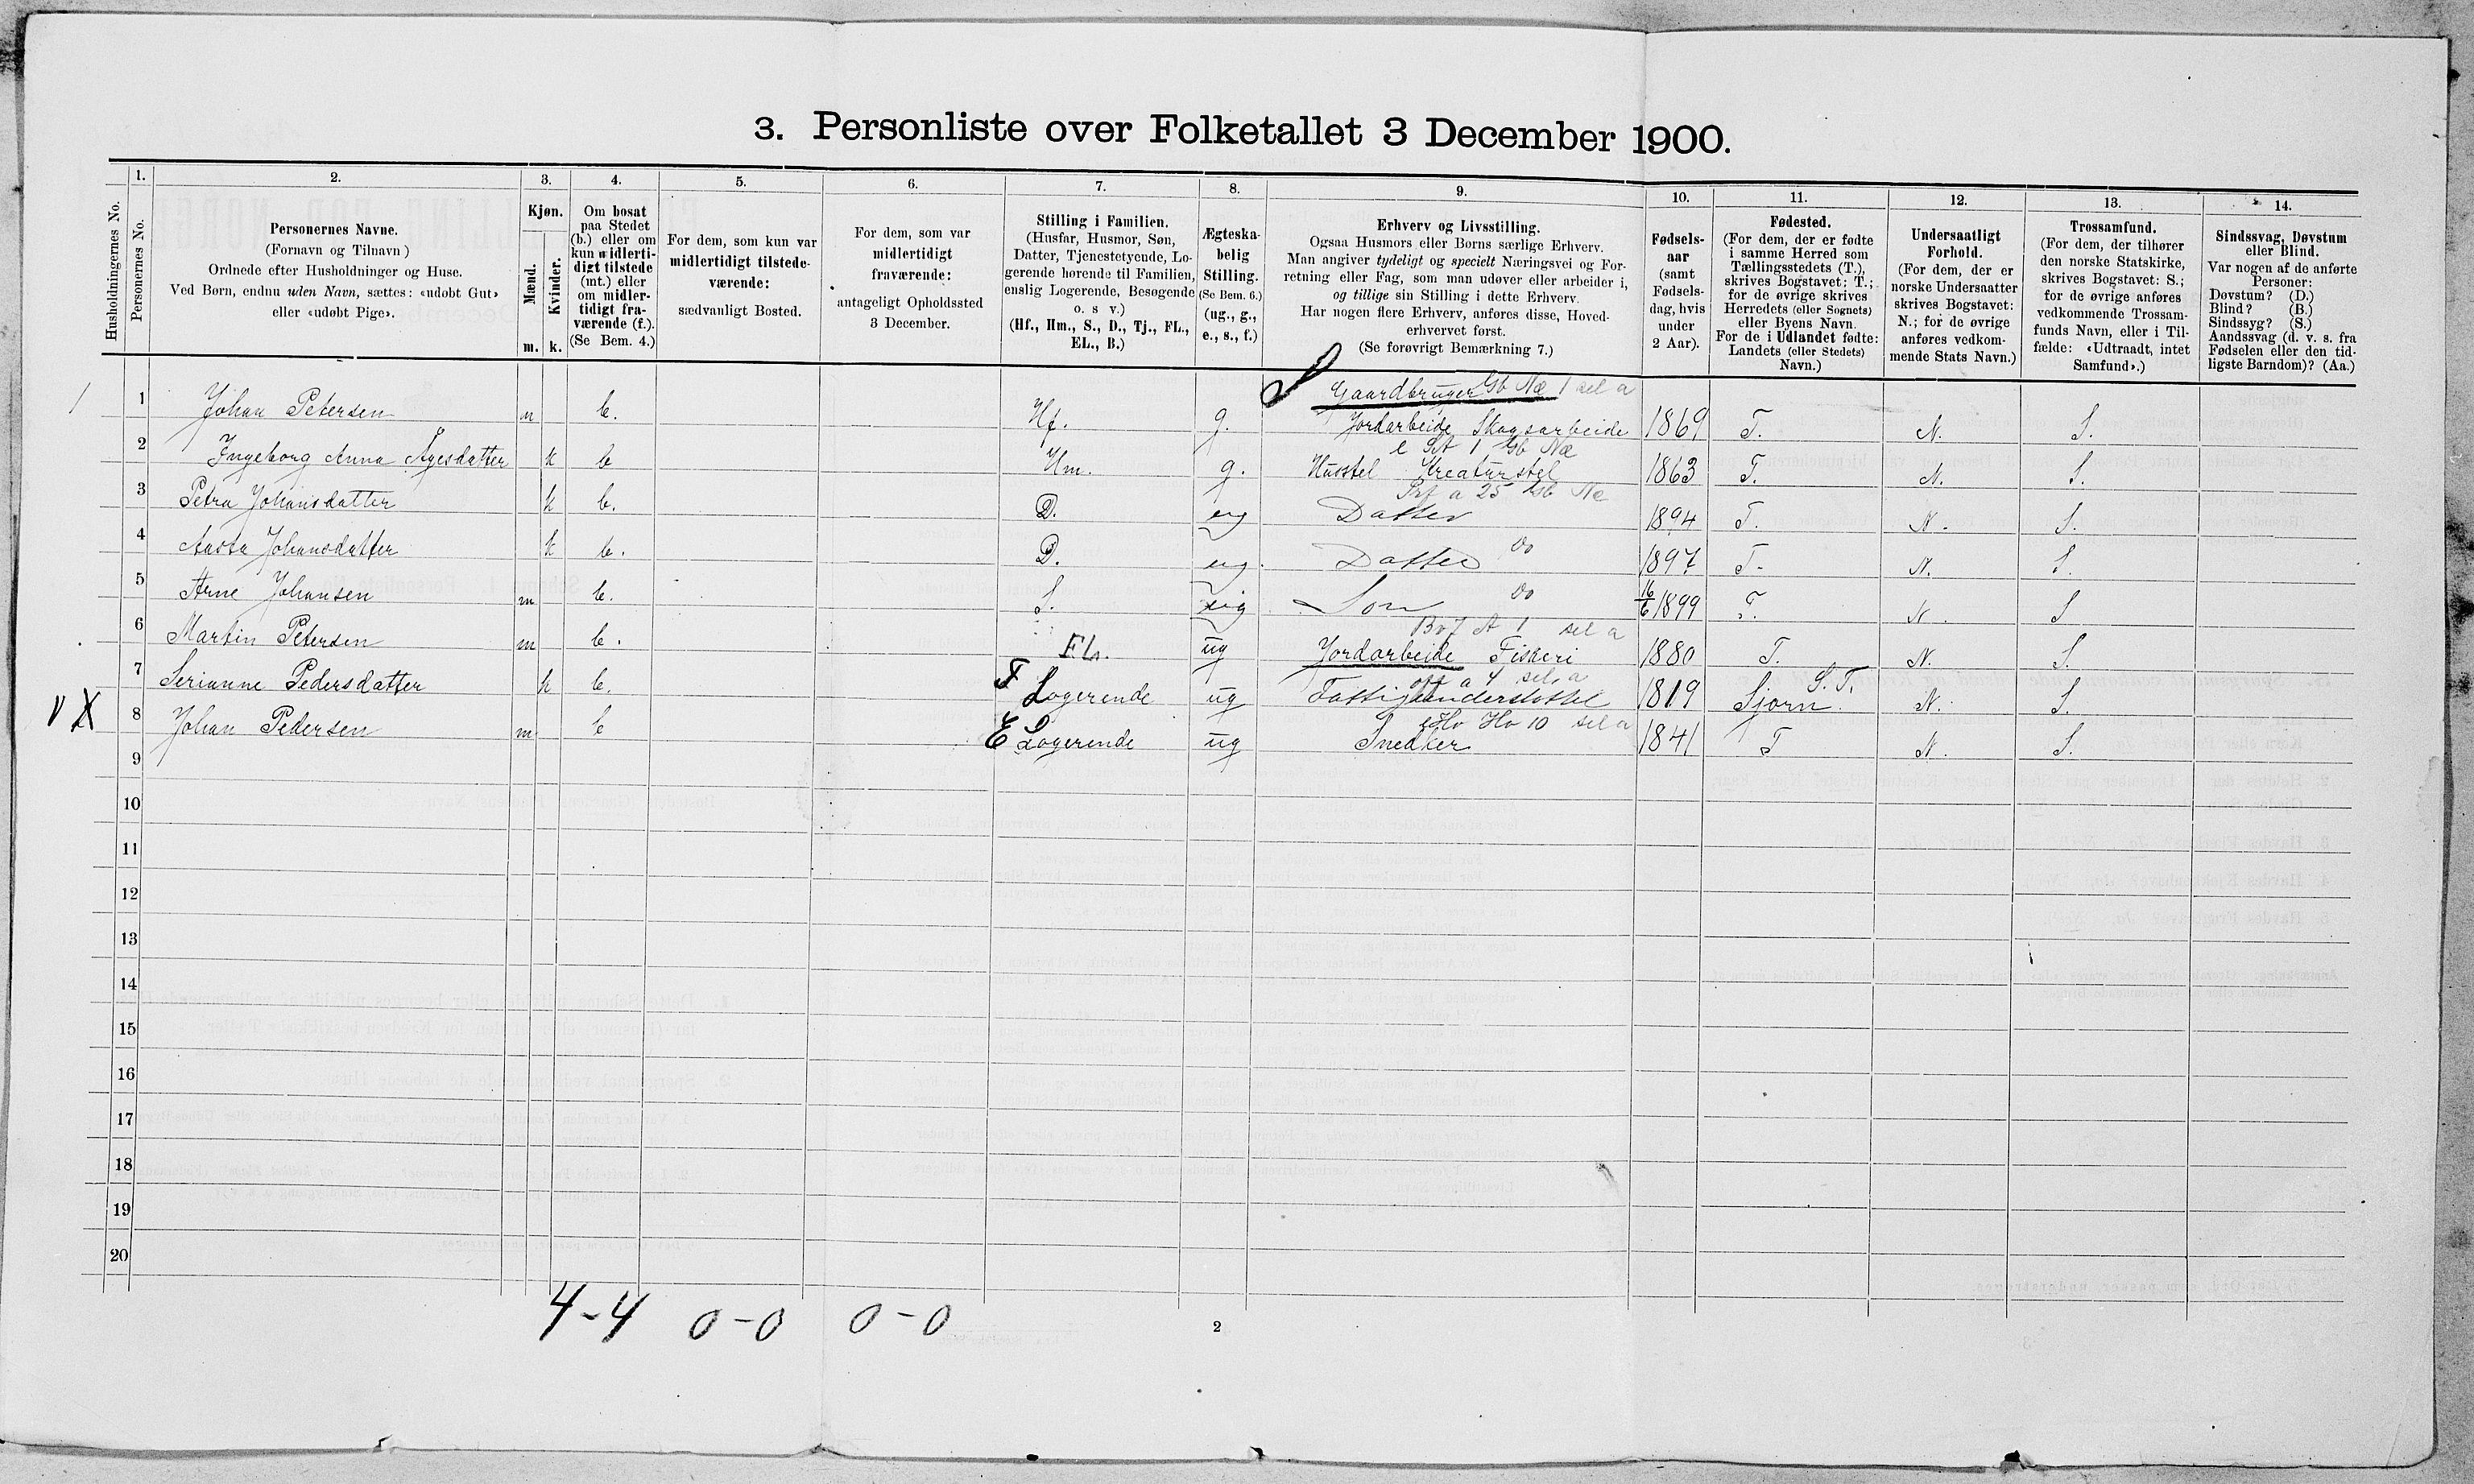 3. Personliste over Folketallet 3 December 1900.
Husholdningernes No.
1.
Personernes No.
2.
Personernes Navne.
(Fornavn og Tilnavn)
Ordnede efter Husholdninger og Huse.
Ved Børn, endnu uden Navn, sættes: «udøbt Gut»
eller «udøbt Pige».
3.
Kjøn.
Mænd.
Kvinder.
m. k.
4.
Om bosat
paa Stedet
(b.) eller om
kun midlerti-
digt tilstede
(mt.) eller
om midler-
tidigt fra-
værende (f.).
(Se Bem. 4.)
5.
For dem, som kun var
midlertidigt tilstede-
værende:
sædvanligt Bosted.
6.
For dem, som var
midlertidigt
fraværende:
antageligt Opholdssted
3 December.
7.
Stilling i Familien.
(Husfar, Husmor, Søn,
Datter, Tjenestetyende, Lo-
gerende hørende til Familien,
enslig Logerende, Besøgende
o. s v.)
(Hf., Hm., S., D., Tj., FL.,
EL., B.)
8.
Ægteska-
belig
Stilling.
(Se Bem. 6.)
(ug., g.,
e., s., f.)
9.
Erhverv og Livsstilling.
Ogsaa Husmors eller Børns særlige Erhverv.
Man angiver tydeligt og specielt Næringsvei og For-
retning eller Fag, som man udøver eller arbeider i,
og tillige sin Stilling i dette Erhverv.
Har nogen flere Erhverv, anføres disse, Hoved-
erhvervet først.
(Se forøvrigt Bemærkning 7.)
10.
Fødsels-
aar
(samt
Fødsels-
dag, hvis
under
2 Aar).
11.
Fødested.
(For dem, der er fødte
i samme Herred som
Tællingsstedets (T.),
skrives Bogstavet: T.;
for de øvrige skrives
Herredets (eller Sognets)
eller Byens Navn.
For de i Udlandet fødte:
Landets (eller Stedets)
Navn.)
12.
Undersaatligt
Forhold.
(For dem, der er
norske Undersaatter
skrives Bogstavet:
N.; for de øvrige
anføres vedkom-
mende Stats Navn.)
13.
Trossamfund.
(For dem, der tilhører
den norske Statskirke,
skrives Bogstavet: S.;
for de øvrige anføres
vedkommende Trossam-
funds Navn, eller i Til-
fælde: «Udtraadt, intet
Samfund».)
14.
Sindssvag, Døvstum
eller Blind.
Var nogen af de anførte
Personer:
Døvstum? (D.)
Blind? (B.)
Sindssyg? (S.)
Aandssvag (d. v. s. fra
Fødselen eller den tid-
ligste Barndom)? (Aa.)
Gaardbruger Gb Næ 1 sel a
1 1 Johan Petersen m b. Hf. g. Jordarbeide Skogsarbeide 1869 T. N. S.
2 Ingeborg Anna Ågesdatter k b Hm. g. Husstel Kreaturstel 1863 T. N. S.
3 Petra Johansdatter k b. D. ug Datter 1894 T. N. S.
4 Aasta Johansdatter k b. D. ug. Datter do 1897 T. N. S.
5 Arne Johansen m b. S. ug Søn do 16/6 1899 T. N. S
6 Martin Petersen m b. FL. ug Jordarbeide Fiskeri 1880 T. N. S.
7 Serianne Pedersdatter k b. F Logerende ug Fattigunderstøttel 1819 Sjørn. S. T. N. S.
8 Johan Pedersen m b E Logerende ug Snedker 1841 T N. S.
9
10
11
12
13
14
15
16
17
18
19
20
4-4 0-0 0-0
2